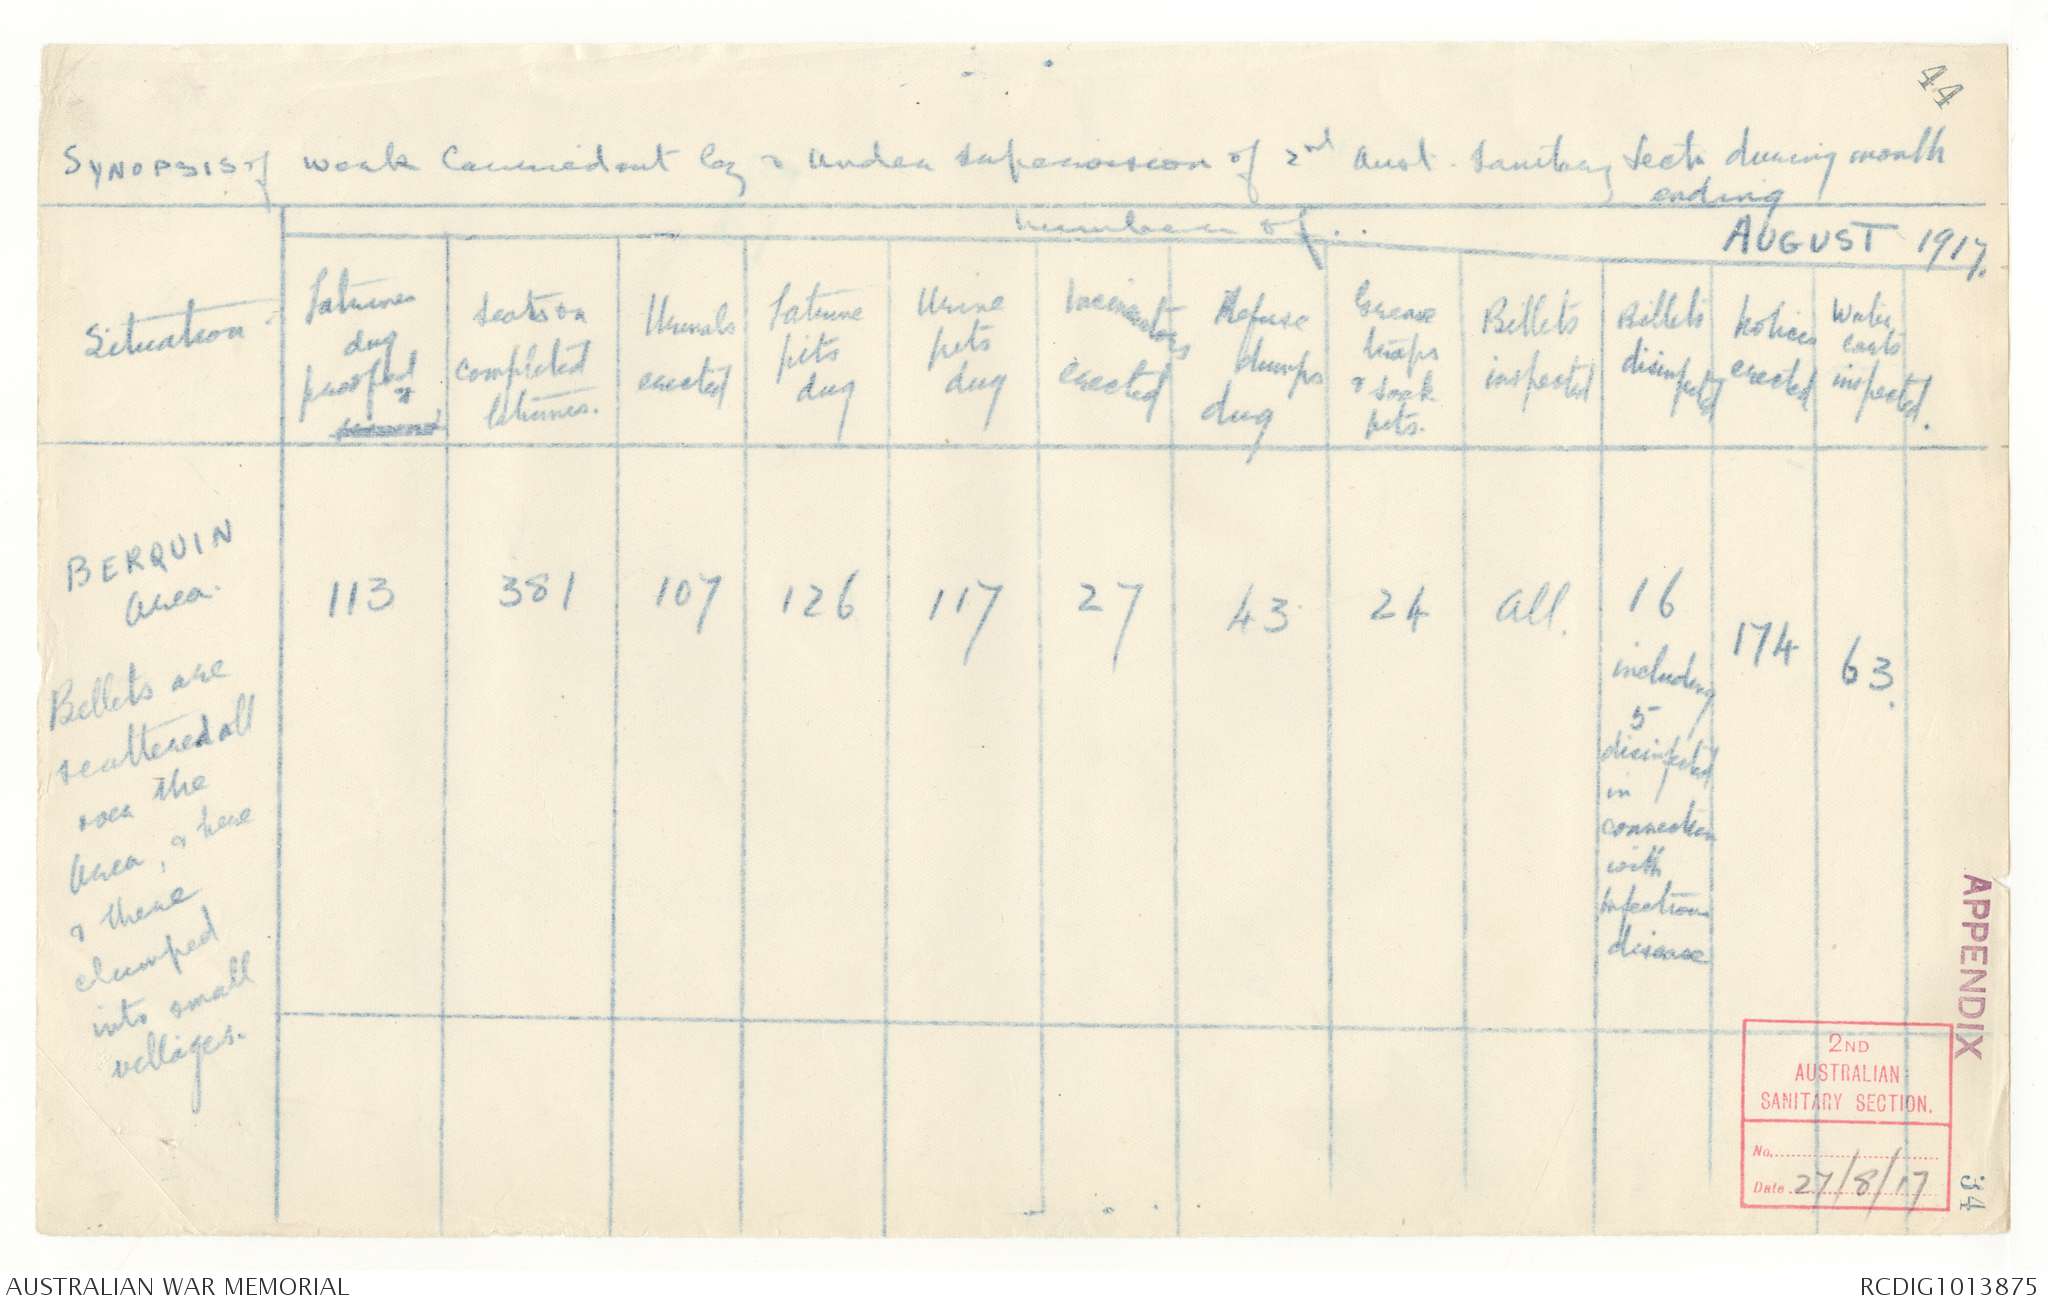 44
SYNOPSIS of work Carried out by & under supervision of 2nd Aust. Sanitary Sectn during month
ending
Number of . .
AUGUST 1917.
Situation
Latrines
dug
fly proofed
&
Seats on
completed
latrines.
Urinals
erected
Latrine
pits
dug
Urine
pits
dug
Incinerators
erected
Refuse
dumps
dug
Grease
traps
& soak
pits.
Billets
inspected
Billets
disinfected
Notices
erected
Water
carts
inspected.
BERQUIN
Area.
113
381
107
126
117
27
43
24
All.
16
including
5
disinfected
in
connection
with
Infectious
disease
174
63.
Billets are
scattered all
over the
Area, & here
& there
clumped
into small
villages.
APPENDIX
34
2ND
AUSTRALIAN
SANITARY SECTION.
No.
Date 27/8/17
AUSTRALIAN WAR MEMORIAL
RCDIG1013875